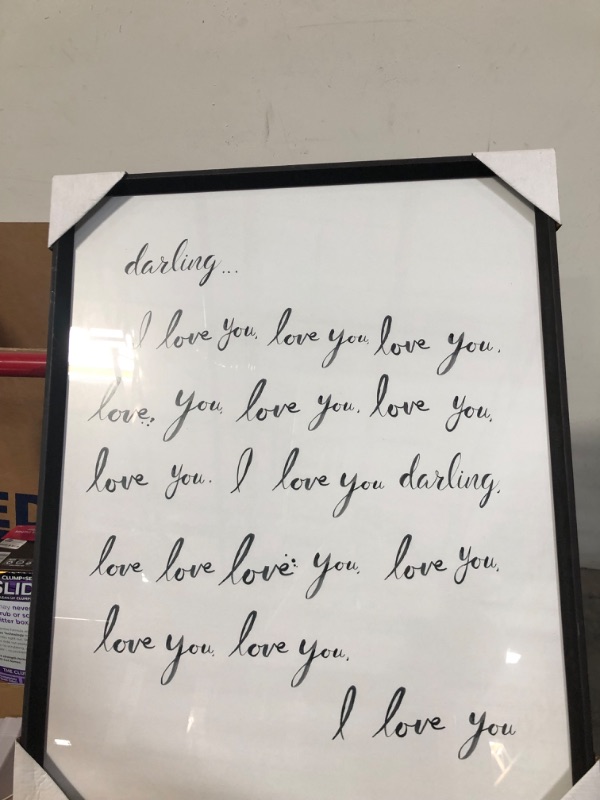 darling...
I love you, love you, love you.
love, you, love you. love you,
love you. I love you darling,
love love love you, love you,
love you, love you,
I love you
CLUMP
SLID